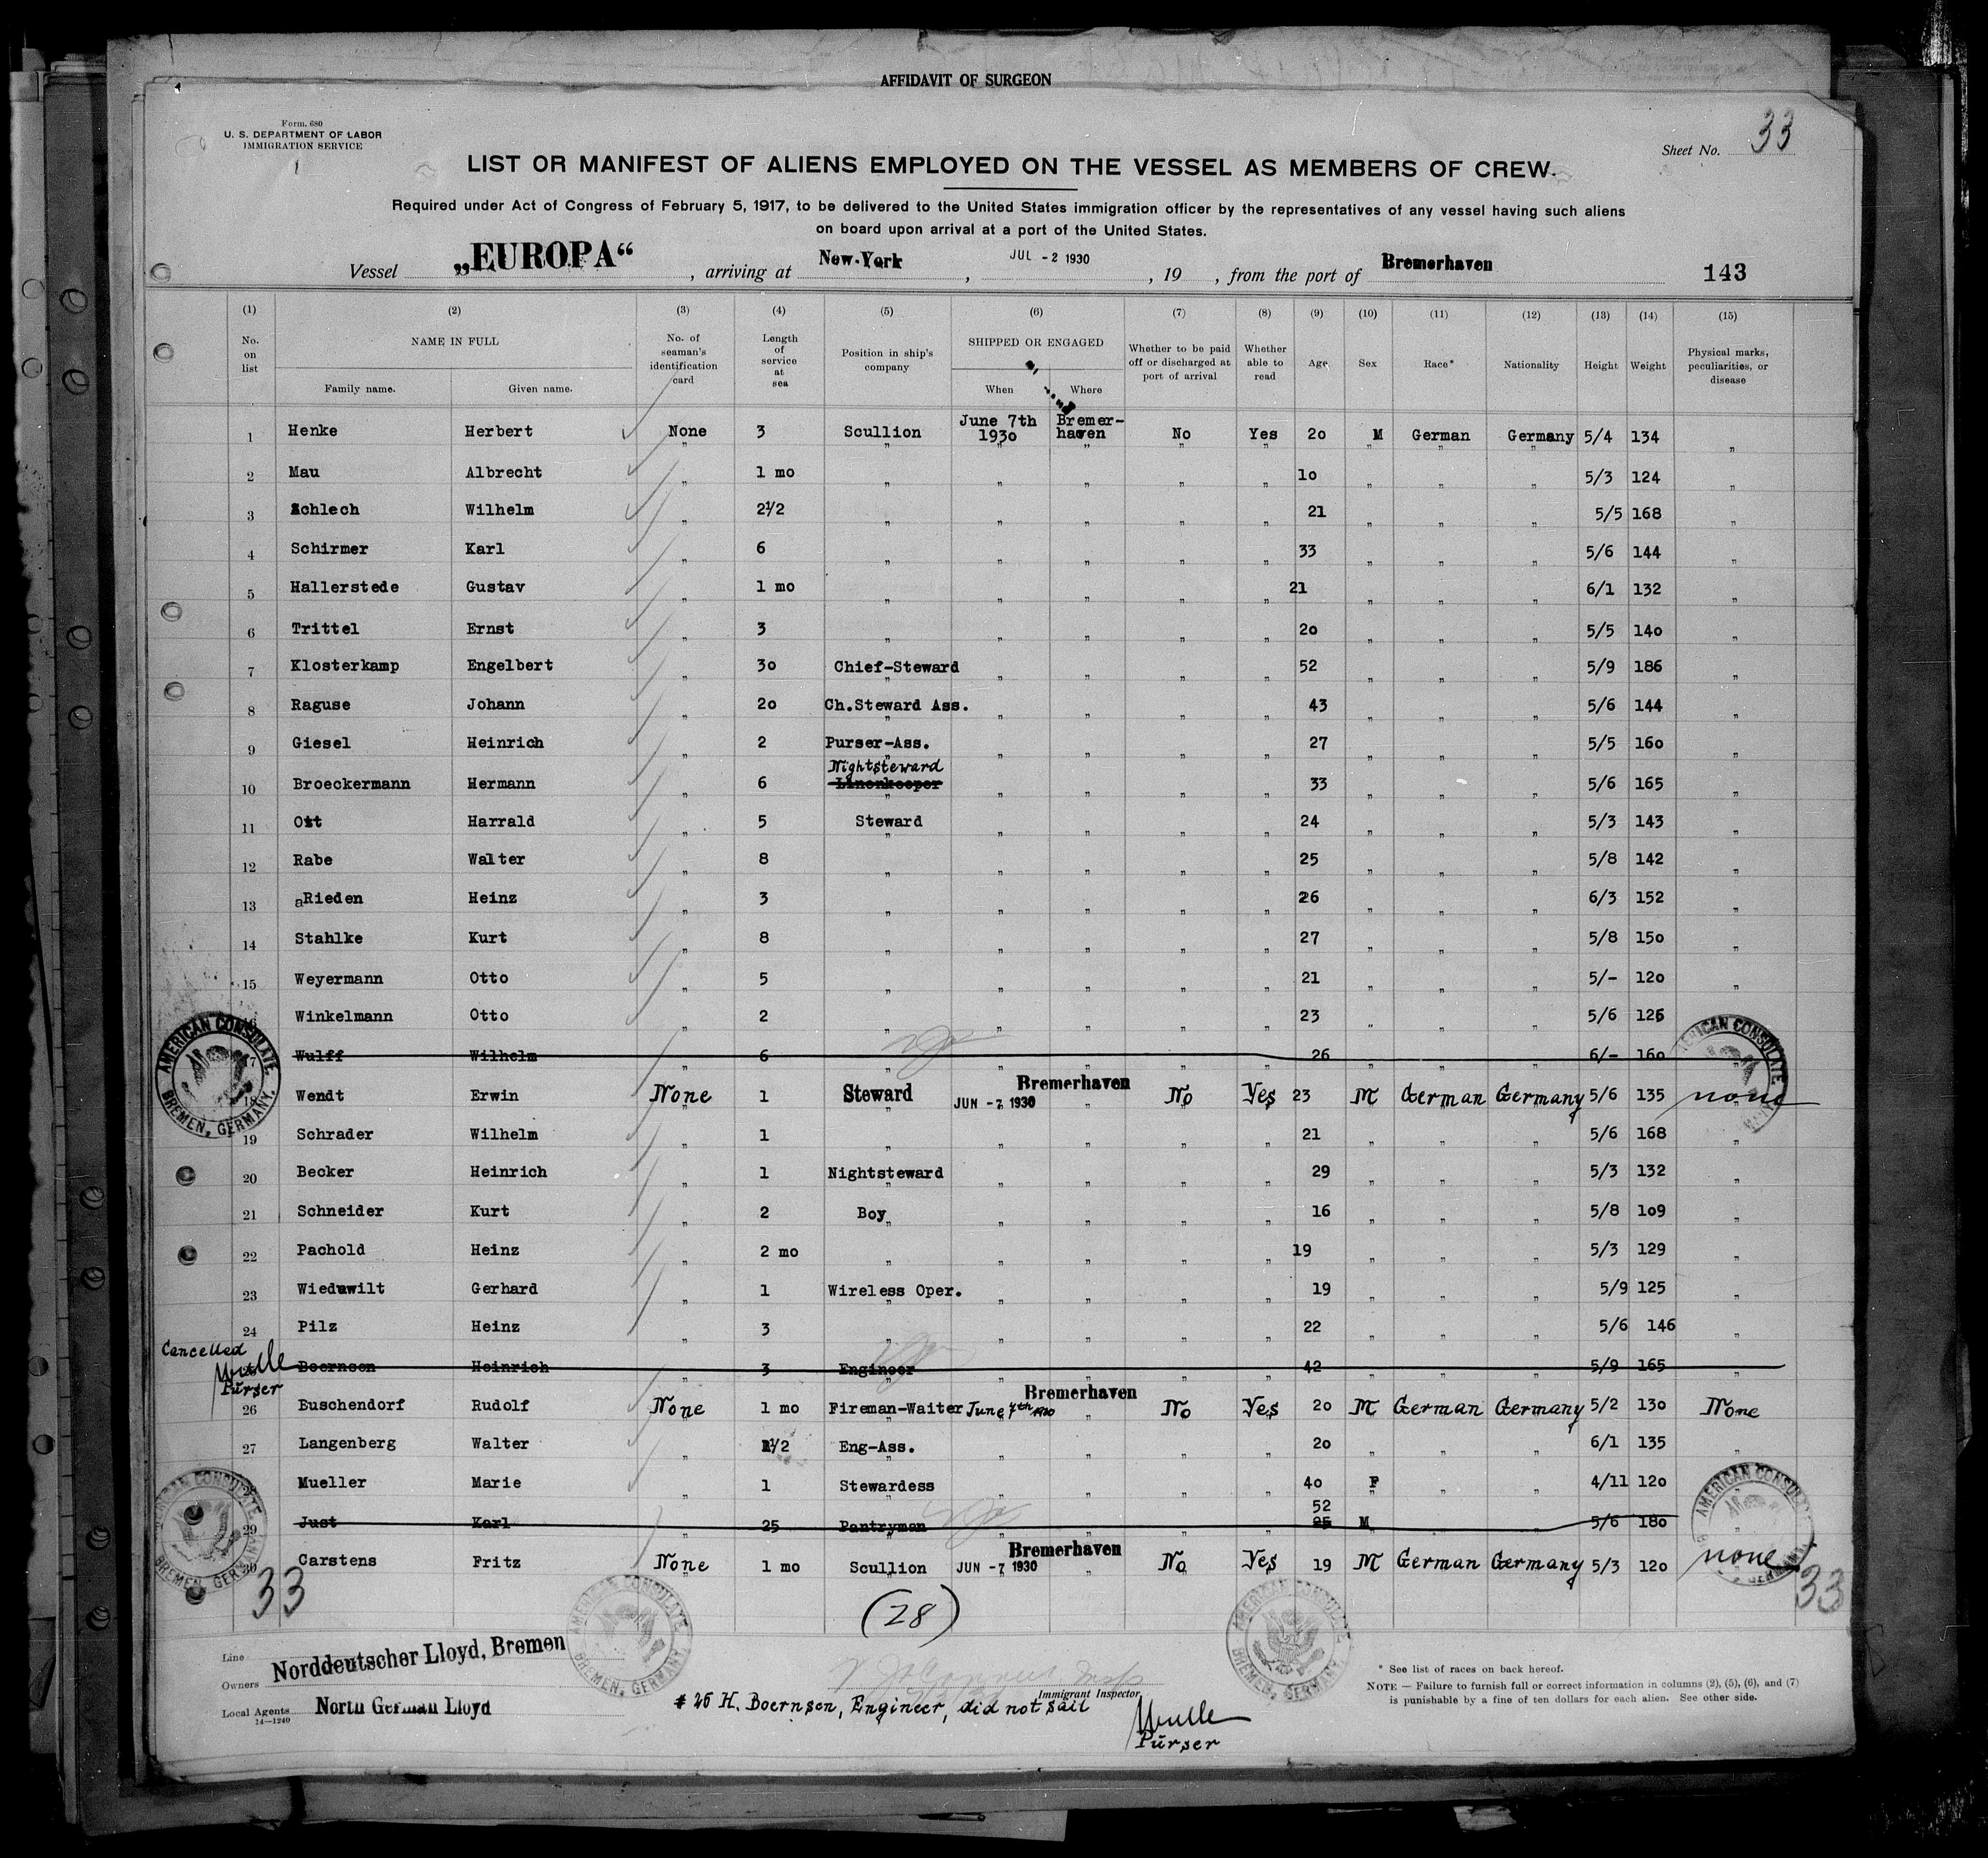 AFFIDAVIT OF SURGEON
Form. 680
U. S. DEPARTMENT OF LABOR
IMMIGRATION SERVICE
Sheet No. 33
LIST OR MANIFEST OF ALIENS EMPLOYED ON THE VESSEL AS MEMBERS OF CREW.
Required under Act of Congress of February 5, 1917, to be delivered to the United States immigration officer by the representatives of any vessel having such aliens
on board upon arrival at a port of the United States.
Vessel „EUROPA“, arriving at New-York, JUL - 2 1930, 19 , from the port of Bremerhaven 143
(1) (2) (3) (4) (5) (6) (7) (8) (9) (10) (11) (12) (13) (14) (15)
No. on list NAME IN FULL Family name. Given name. No. of seaman's identification card Length of service at sea Position in ship's company SHIPPED OR ENGAGED When Where Whether to be paid off or discharged at port of arrival Whether able to read Age Sex Race* Nationality Height Weight Physical marks, peculiarities, or disease
1 Henke Herbert None 3 Scullion June 7th 1930 Bremer-haven No Yes 20 M German Germany 5/4 134 „
2 Mau Albrecht „ 1 mo „ „ „ „ „ 10 „ „ „ 5/3 124 „
3 Schlech Wilhelm „ 2½ „ „ „ „ „ 21 „ „ „ 5/5 168 „
4 Schirmer Karl „ 6 „ „ „ „ „ 33 „ „ „ 5/6 144 „
5 Hallerstede Gustav „ 1 mo „ „ „ „ „ 21 „ „ „ 6/1 132 „
6 Trittel Ernst „ 3 „ „ „ „ „ 20 „ „ „ 5/5 140 „
7 Klosterkamp Engelbert „ 30 Chief-Steward „ „ „ „ 52 „ „ „ 5/9 186 „
8 Raguse Johann „ 20 Ch.Steward Ass. „ „ „ „ 43 „ „ „ 5/6 144 „
9 Giesel Heinrich „ 2 Purser-Ass. „ „ „ „ 27 „ „ „ 5/5 160 „
Nightsteward
10 Broeckermann Hermann „ 6 Linenkeeper „ „ „ „ 33 „ „ „ 5/6 165 „
11 Ott Harrald „ 5 Steward „ „ „ „ 24 „ „ „ 5/3 143 „
12 Rabe Walter „ 8 „ „ „ „ „ 25 „ „ „ 5/8 142 „
13 aRieden Heinz „ 3 „ „ „ „ „ 26 „ „ „ 6/3 152 „
14 Stahlke Kurt „ 8 „ „ „ „ „ 27 „ „ „ 5/8 150 „
15 Weyermann Otto „ 5 „ „ „ „ „ 21 „ „ „ 5/- 120 „
16 Winkelmann Otto „ 2 „ „ „ „ „ 23 „ „ „ 5/6 126
17 Wulff Wilhelm „ 6 „ „ „ „ „ 26 „ „ „ 6/- 160
18 Wendt Erwin None 1 Steward JUN - 7 1930 Bremerhaven No Yes 23 M German Germany 5/6 135 none
19 Schrader Wilhelm „ 1 „ „ „ „ „ 21 „ „ „ 5/6 168 „
20 Becker Heinrich „ 1 Nightsteward „ „ „ „ 29 „ „ „ 5/3 132 „
21 Schneider Kurt „ 2 Boy „ „ „ „ 16 „ „ „ 5/8 109 „
22 Pachold Heinz „ 2 mo „ „ „ „ „ 19 „ „ „ 5/3 129 „
23 Wieduwilt Gerhard „ 1 Wireless Oper. „ „ „ „ 19 „ „ „ 5/9 125 „
24 Pilz Heinz „ 3 „ „ „ „ „ 22 „ „ „ 5/6 146 „
Cancelled
25 Boernsen Heinrich „ 3 Engineer „ „ „ „ 42 „ „ „ 5/9 165
Purser
26 Euschendorf Rudolf None 1 mo Fireman-Waiter June 7th 1930 Bremerhaven No Yes 20 M German Germany 5/2 130 None
27 Langenberg Walter „ 1½ Eng-Ass. „ „ „ „ 20 „ „ „ 6/1 135 „
28 Mueller Marie „ 1 Stewardess „ „ „ „ 40 F „ „ 4/11 120
52
29 Just Karl „ 25 Pantryman „ „ „ „ 25 M „ „ 5/6 180 „
30 Carstens Fritz None 1 mo Scullion JUN - 7 1930 Bremerhaven No Yes 19 M German Germany 5/3 120 none
33
(28)
33
AMERICAN CONSULATE BREMEN, GERMANY.
AMERICAN CONSULATE
AMERICAN CONSULATE BREMEN, GERMANY.
AMERICAN CONSULATE
AMERICAN CONSULATE BREMEN, GERMANY.
AMERICAN CONSULATE BREMEN, GERMANY.
Line
Owners Norddeutscher Lloyd, Bremen
Local Agents North German Lloyd
14—1240
Immigrant Inspector
# 25 H. Boernsen, Engineer, did not sail
Purser
* See list of races on back hereof.
NOTE — Failure to furnish full or correct information in columns (2), (5), (6), and (7)
is punishable by a fine of ten dollars for each alien. See other side.